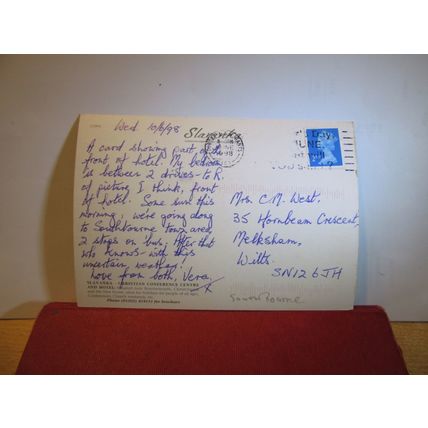 Wed 10/6/98
Slavanka
A card showing part of the
front of hotel. My bedroom
is between 2 drives - to R.
of picture I think, front
of hotel. Some sun this
morning, we're going along
to Southbourne town area
2 stops on bus, After that
who knows - with this
uncertain weather!
Love from both, Vera
X
SLAVANKA - CHRISTIAN CONFERENCE CENTRE
AND HOTEL
Phone for brochure
JUNE
Mrs. C. M. West.
35 Hornbeam Crescent,
Melksham,
Wilts.
SN12 6JH
Southbourne